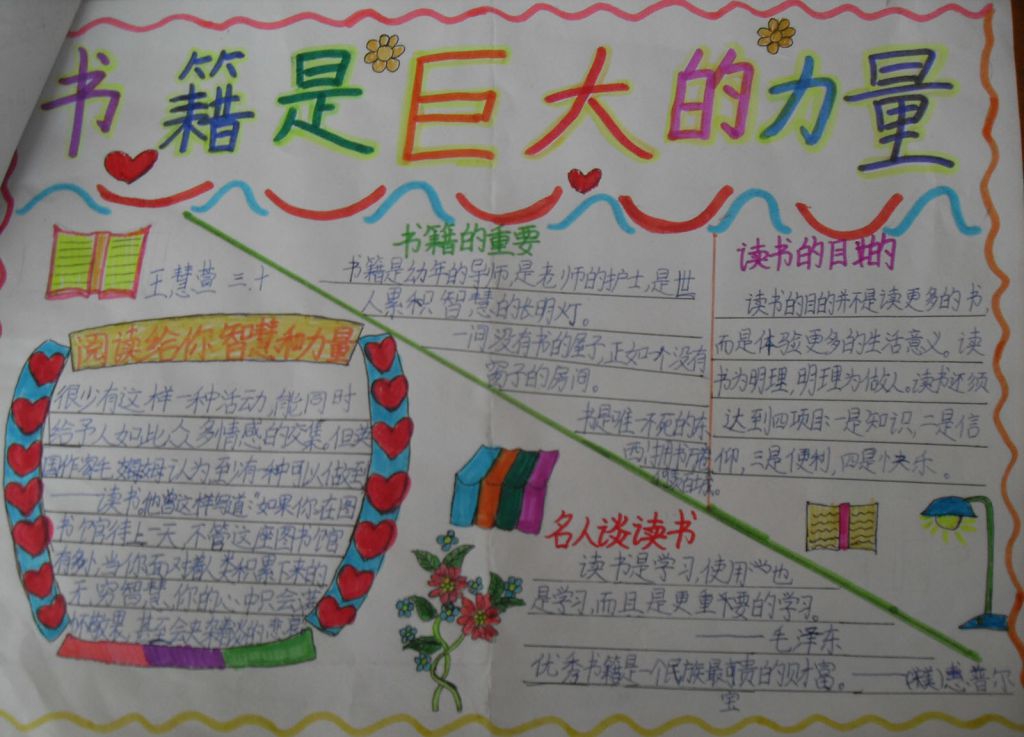 书籍是巨大的力量
王慧萱 三.十
阅读给你智慧和力量
很少有这样一种活动,能同时
给予人如此众多情感的交集。但英
国作家毛姆认为至少有一种可以做到
——读书他曾这样写道:"如果你在图
书馆待上一天,不管这座图书馆
有多小,当你面对着人类积累下来的
无穷智慧,你的心中只会满
怀敬畏,甚至会夹杂着淡的悲哀
书籍的重要
书籍是幼年的导师,是老师的护士,是世
人累积智慧的长明灯。
一间没有书的屋子,正如一个没有
窗子的房间。
书是唯一不死的东
西。
读书的目的
读书的目的并不是读更多的书,
而是体验更多的生活意义。读
书为明理,明理为做人。读书还须
达到四项目:一是知识,二是信
仰,三是便利,四是快乐。
名人谈读书
读书是学习,使用也
是学习,而且是更重要的学习。
——毛泽东
优秀书籍是一个民族最宝贵的财富。——(美)惠普尔
宝